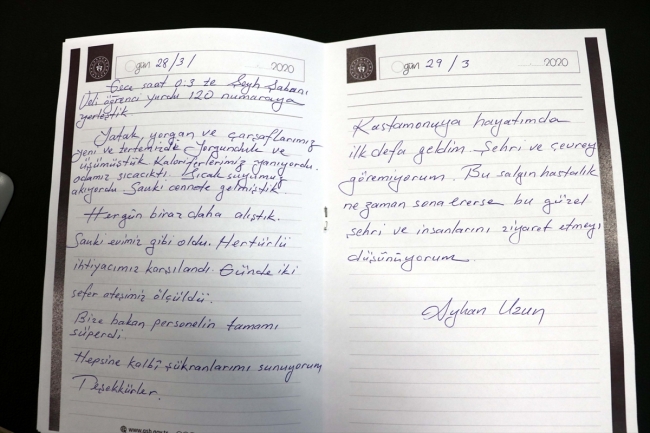 Ogün 28/3/ 2020
Gece saat 0:3 te Şeyh Şabanı
Veli öğrenci yurdu 120 numaraya
yerleştik
Yatak, yorgan ve çarşaflarımız
yeni ve tertemizdi. Yorgunduk ve
üşümüştük Kaloriferlerimiz yanıyordu.
odamız sıcacıktı. Sıcak suyumuz
akıyordu Sanki cennete gelmiştik.
Hergün biraz daha alıştık.
Sanki evimiz gibi oldu. Hertürlü
ihtiyacımız karşılandı. Günde iki
sefer ateşimiz ölçüldü.
Bize bakan personelin tamamı
süperdi.
Hepsine kalbî şükranlarımı sunuyorum
Teşekkürler.
Ogün 29/3 2020
Kastamonuya hayatımda
ilk defa geldim. Şehri ve çevreyi
göremiyorum. Bu salgın hastalık
ne zaman sona ererse bu güzel
şehri ve insanlarını ziyaret etmeyi
düşünüyorum.
Ayhan Uzun